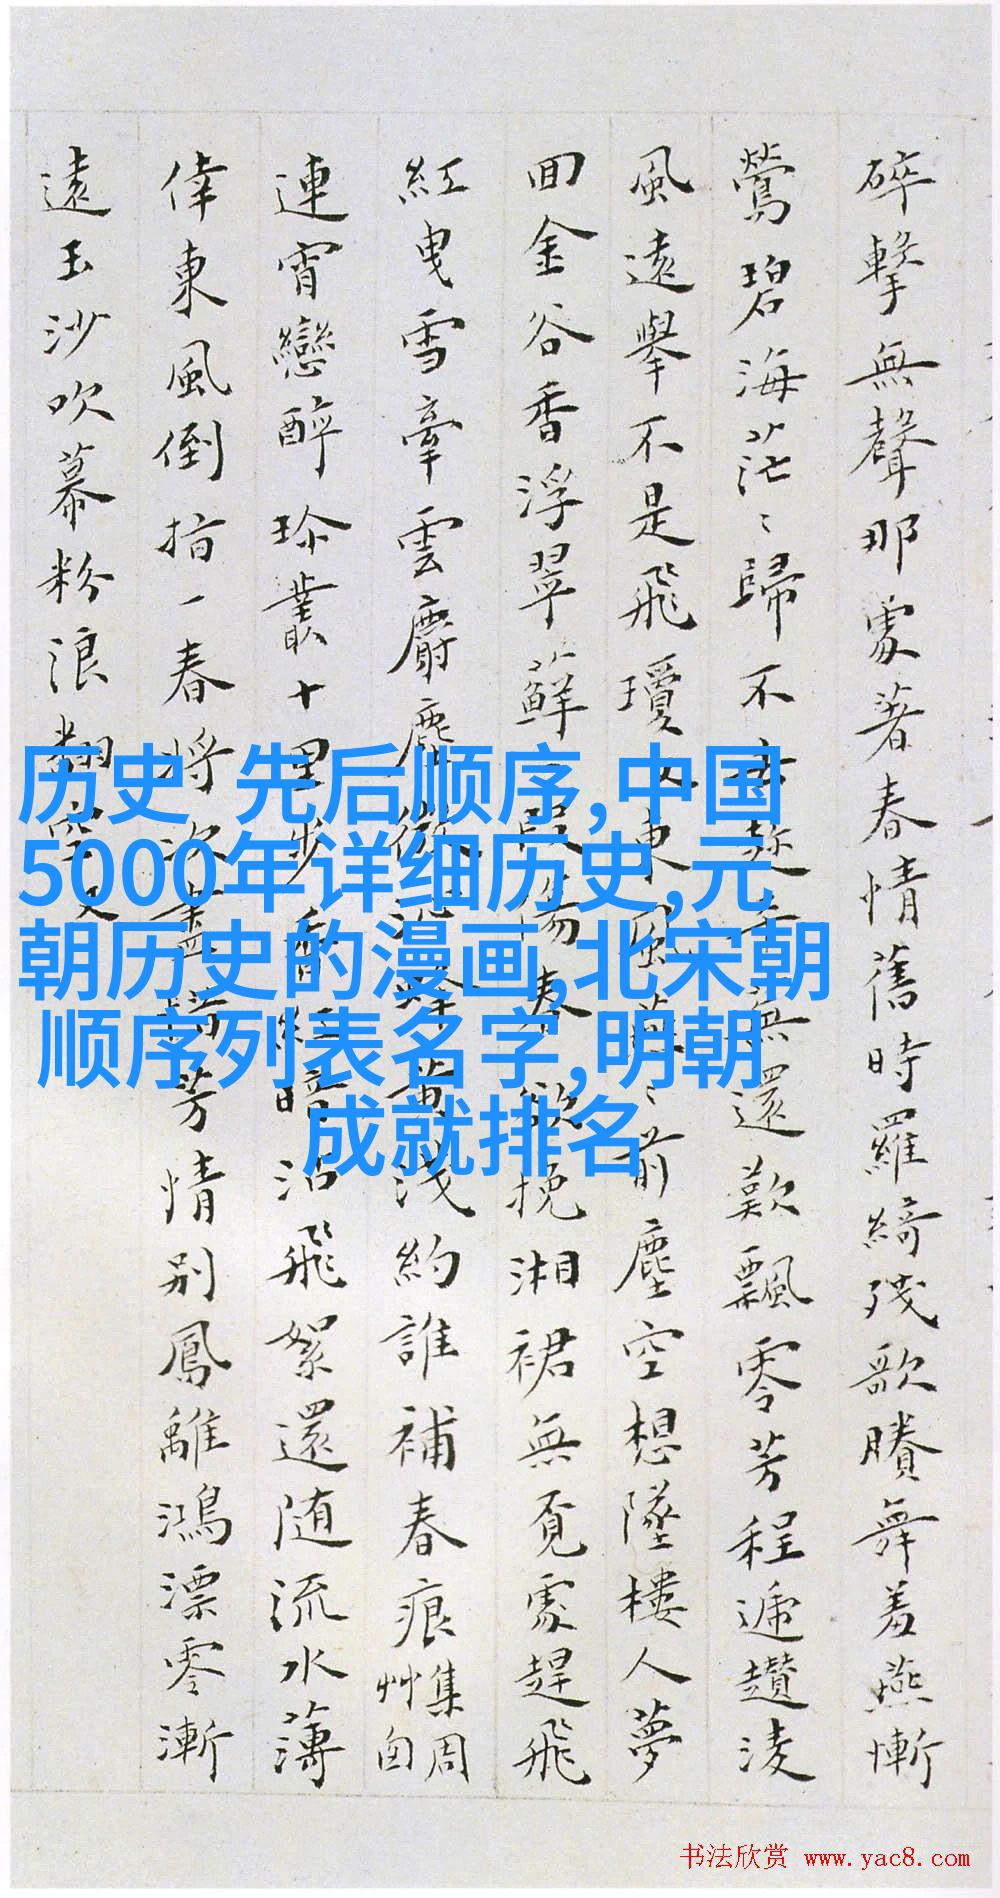 碎擊無聲那處著春情舊時羅綺殘歌賸舞羞燕慚
鶯碧海茫〻歸不去還歎飄零芳程遞趲淩
風遠舉不是飛瓊東風前塵空想墜樓人夢
回金谷香浮翠蘚傷春欲挽湘裙無覓處趕飛
紅曳雪牽雲麝塵黃淺約誰補春痕
草窗
集周
連宵戀醉珍叢十里步香暗沾飛絮還随流水薄
倖東風倒指一春將次盡芳情別鳳離鴻漂零漸
遠玉沙吹幕粉浪翻空
历史 先后顺序,中国
5000年详细历史,元
朝历史的漫画,北宋朝
顺序列表名字,明朝
成就排名
书法欣赏 www.yac8.com